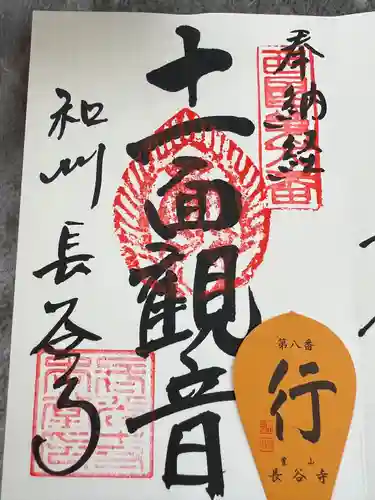 奉納経
十一面観音
和州 長谷寺
第八番
行
豊山
長谷寺